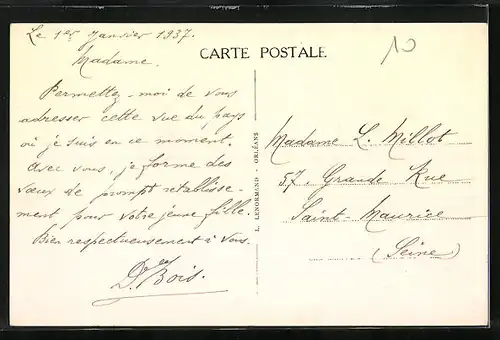 Le 1er Janvier 1937.
Madame.
Permettez-moi de vous
adresser cette vue du pays
où je suis en ce moment.
Avec vous, je forme des
vœux de prompt rétablisse-
ment pour votre jeune fille.
Bien respectueusement à vous.
Bois.
CARTE POSTALE
10
L. LENORMAND - ORLÉANS
Madame L. Millot
57, Grande Rue
Saint Maurice
(Seine)